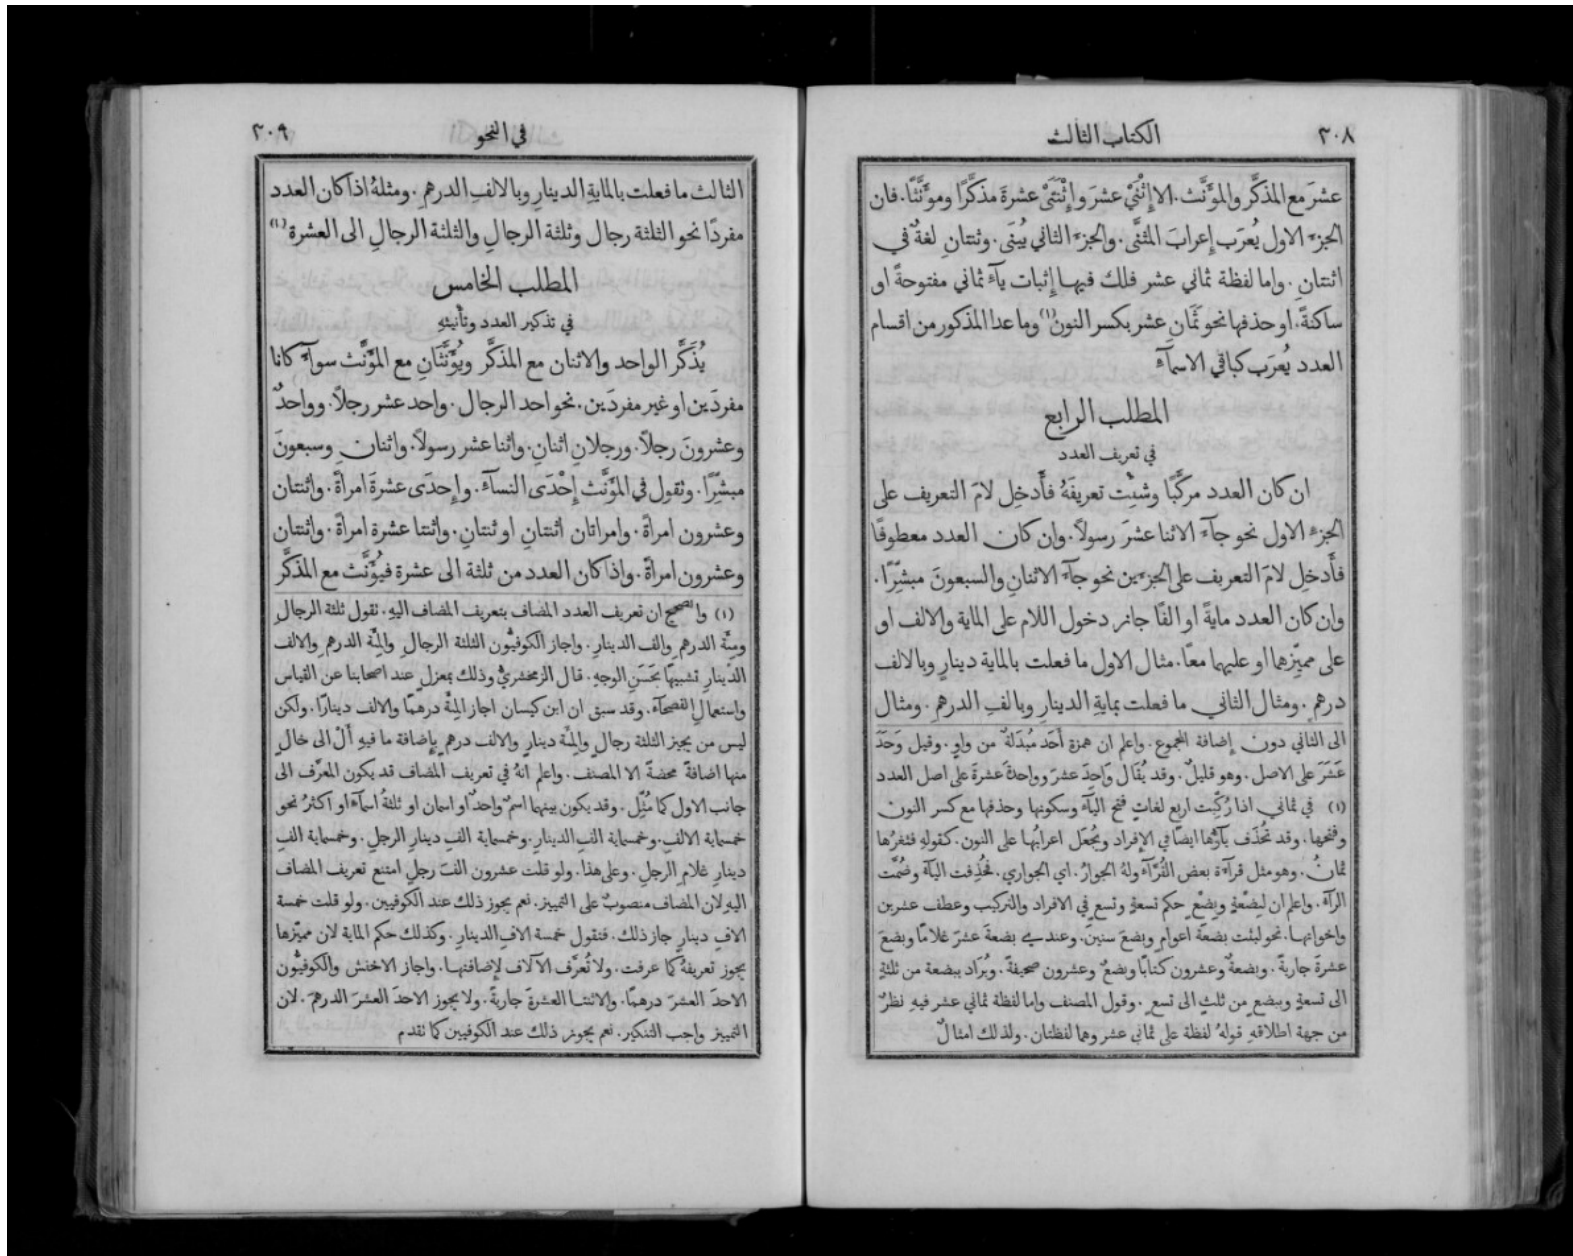 ٣٠٨
الكتاب الثالث
عشرَ مع المذكَّر والمؤَنَّث. الا اِثْنَيْ عشرَ واِثْنَتَيْ عشرةَ مذكَّرًا ومؤَنَّثًا. فان
الجزء الاول يُعرَب إِعرابَ المثنَّى. والجزء الثاني يُبنَى. وثنتانِ لغةٌ في
اثنتانِ. واما لفظة ثماني عشر فلك فيها إِثبات يآء ثماني مفتوحةً او
ساكنةً. او حذفها نحو ثَمَانِ عشر بكسر النون (١) وما عدا المذكور من اقسام
العدد يُعرَب كباقي الاسمآء
المطلب الرابع
في تعريف العدد
ان كان العدد مركَّبًا وشئِت تعريفَهُ فأَدخِل لامَ التعريف على
الجزء الاول نحو جآء الاثنا عشرَ رسولاً. وان كان العدد معطوفًا
فأَدخِل لامَ التعريف على الجزءين نحو جآء الاثنانِ والسبعونَ مبشِّرًا.
وان كان العدد مايةً او الفًا جاز دخول اللام على الماية والالف او
على مميِّزهما او عليهما معًا. مثال الاول ما فعلت بالماية دينارٍ وبالالف
درهمٍ. ومثال الثاني ما فعلت بمايةِ الدينارِ وبالفِ الدرهمِ. ومثال
الى الثاني دون إضافة المجموع. واعلم ان همزة أَحَد مُبدَلةٌ من واوٍ. وقيل وَحَدَ
عَشَرَ على الاصل. وهو قليلٌ. وقد يُقَال وَاحِدَ عشرَ وواحدةَ عشرةَ على اصل العدد
(١) في ثماني اذا رُكِّبت اربع لغاتٍ فتح اليآء وسكونها وحذفها مع كسر النون
وفتحها. وقد تُحذَف يآؤُها ايضًا في الإفراد ويُجعَل اعرابُها على النون. كقولهِ فثغرُها
ثمانُ. وهو مثل قرآءة بعض القُرَّآء ولهُ الجوارُ. اي الجواري. فحُذِفت اليآء وضُمَّت
الرآء. واعلم ان لبِضْعةٍ وبِضْعٍ حكم تسعةٍ وتسعٍ في الافراد والتركيب وعطف عشرين
واخواتها. نحو لبثت بضعةَ اعوامٍ وبضعَ سنينَ. وعندي بضعةَ عشرَ غلامًا وبضعَ
عشرةَ جاريةً. وبضعةٌ وعشرون كتابًا وبضعٌ وعشرون صحيفةً. ويُرَاد ببضعة من ثلثةٍ
الى تسعةٍ وببضعٍ من ثلثٍ الى تسعٍ. وقول المصنف واما لفظة ثماني عشر فيهِ نظرٌ
من جهة اطلاقهِ قولهُ لفظة على ثماني عشر وهما لفظتان. ولذلك امثالٌ
٣٠٩
في النحو
الثالث ما فعلت بالمايةِ الدينارِ وبالالفِ الدرهمِ. ومثلهُ اذا كان العدد
مفردًا نحو الثلثة رجال وثلثة الرجالِ والثلثة الرجالِ الى العشرة (١)
المطلب الخامس
في تذكير العدد وتأنيثهِ
يُذَكَّر الواحد والاثنان مع المذكَّر ويُؤَنَّثَانِ مع المؤَنَّث سوآء كانا
مفردَين او غير مفردَين. نحو احد الرجال. واحد عشر رجلاً. وواحدٌ
وعشرونَ رجلاً. ورجلانِ اثنانِ. واثنا عشر رسولاً. واثنانِ وسبعونَ
مبشِّرًا. وتقول في المؤَنَّث إِحْدَى النسآء. وإِحدَى عشرةَ امرأَةً. واثنتان
وعشرون امرأَةً. وامراتان اثنتانِ او ثنتانِ. واثنتا عشرة امرأَةً. واثنتان
وعشرون امرأَةً. واذا كان العدد من ثلثة الى عشرة فيُؤَنَّث مع المذكَّر
(١) والصحيح ان تعريف العدد المضاف بتعريف المضاف اليهِ. تقول ثلثة الرجالِ
ومئَة الدرهمِ والف الدينارِ. واجاز الكوفيُّون الثلثة الرجالِ والمئَة الدرهمِ والالف
الدينارِ تشبيهًا بحَسَنِ الوجهِ. قال الزمخشريُّ وذلك بمعزلٍ عند اصحابنا عن القياس
واستعمالِ الفصحآء. وقد سبق ان ابن كيسان اجاز المئَة درهمًا والالف دينارًا. ولكن
ليس من يجيز الثلثة رجالٍ والمئَة دينارٍ والالف درهمٍ بإضافة ما فيهِ أَلْ الى خالٍ
منها اضافةً محضةً الا المصنف. واعلم انهُ في تعريف المضاف قد يكون المعرَّف الى
جانب الاول كما مُثِّل. وقد يكون بينهما اسمٌ واحدٌ او اسمان او ثلثةُ اسمآء او اكثرُ نحو
خمسماية الالفِ. وخمسماية الفِ الدينارِ. وخمسماية الفِ دينارِ الرجلِ. وخمسماية الفِ
دينارِ غلامِ الرجلِ. وعلى هذا. ولو قلت عشرون الفَ رجلٍ امتنع تعريف المضاف
اليهِ لان المضاف منصوبٌ على التمييز. نعم يجوز ذلك عند الكوفيين. ولو قلت خمسة
الافِ دينارٍ جاز ذلك. فتقول خمسة الافِ الدينارِ. وكذلك حكم الماية لان مميّزها
يجوز تعريفهُ كما عرفت. ولا تُعرَّف الآلاف لإضافتها. واجاز الاخفش والكوفيُّون
الاحدَ العشرَ درهمًا. والاثنتا العشرةَ جاريةً. ولا يجوز الاحدَ العشرَ الدرهمَ. لان
التمييز واجب التنكير. نعم يجوز ذلك عند الكوفيين كما تقدم